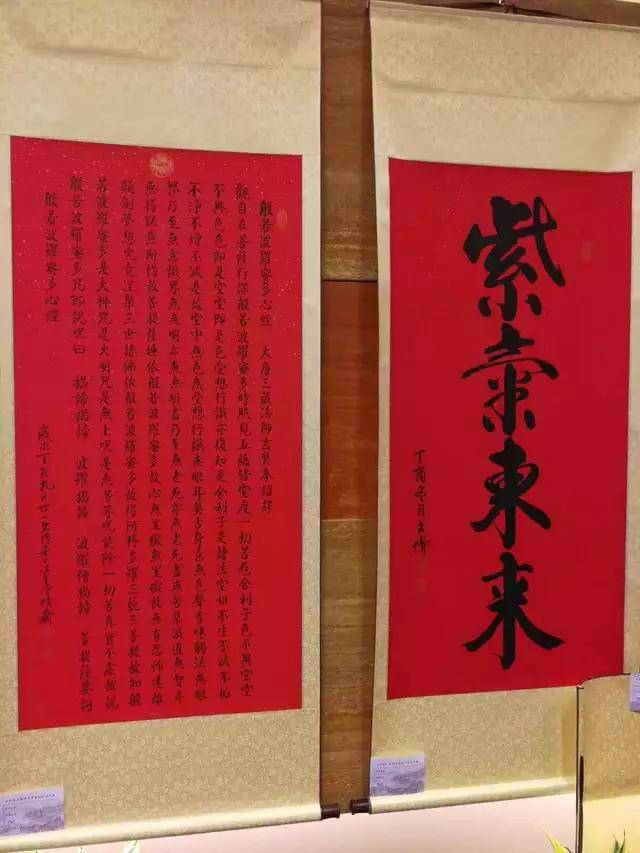 紫氣東來
丁酉冬月文偉
般若波羅蜜多心經 大唐三藏法師玄奘奉詔譯
觀自在菩薩行深般若波羅蜜多時照見五蘊皆空度一切苦厄舍利子色不異空空
不異色色即是空空即是色受想行識亦復如是舍利子是諸法空相不生不滅不垢
不淨不增不減是故空中無色無受想行識無眼耳鼻舌身意無色聲香味觸法無眼
界乃至無意識界無無明亦無無明盡乃至無老死亦無老死盡無苦集滅道無智亦
無得以無所得故菩提薩埵依般若波羅蜜多故心無罣礙無罣礙故無有恐怖遠離
顛倒夢想究竟涅槃三世諸佛依般若波羅蜜多故得阿耨多羅三藐三菩提故知般
若波羅蜜多是大神咒是大明咒是無上咒是無等等咒能除一切苦真實不虛故說
般若波羅蜜多咒即說咒曰 揭諦揭諦 波羅揭諦 波羅僧揭諦 菩提薩婆訶
般若波羅蜜多心經
歲次丁酉九月廿一文偉